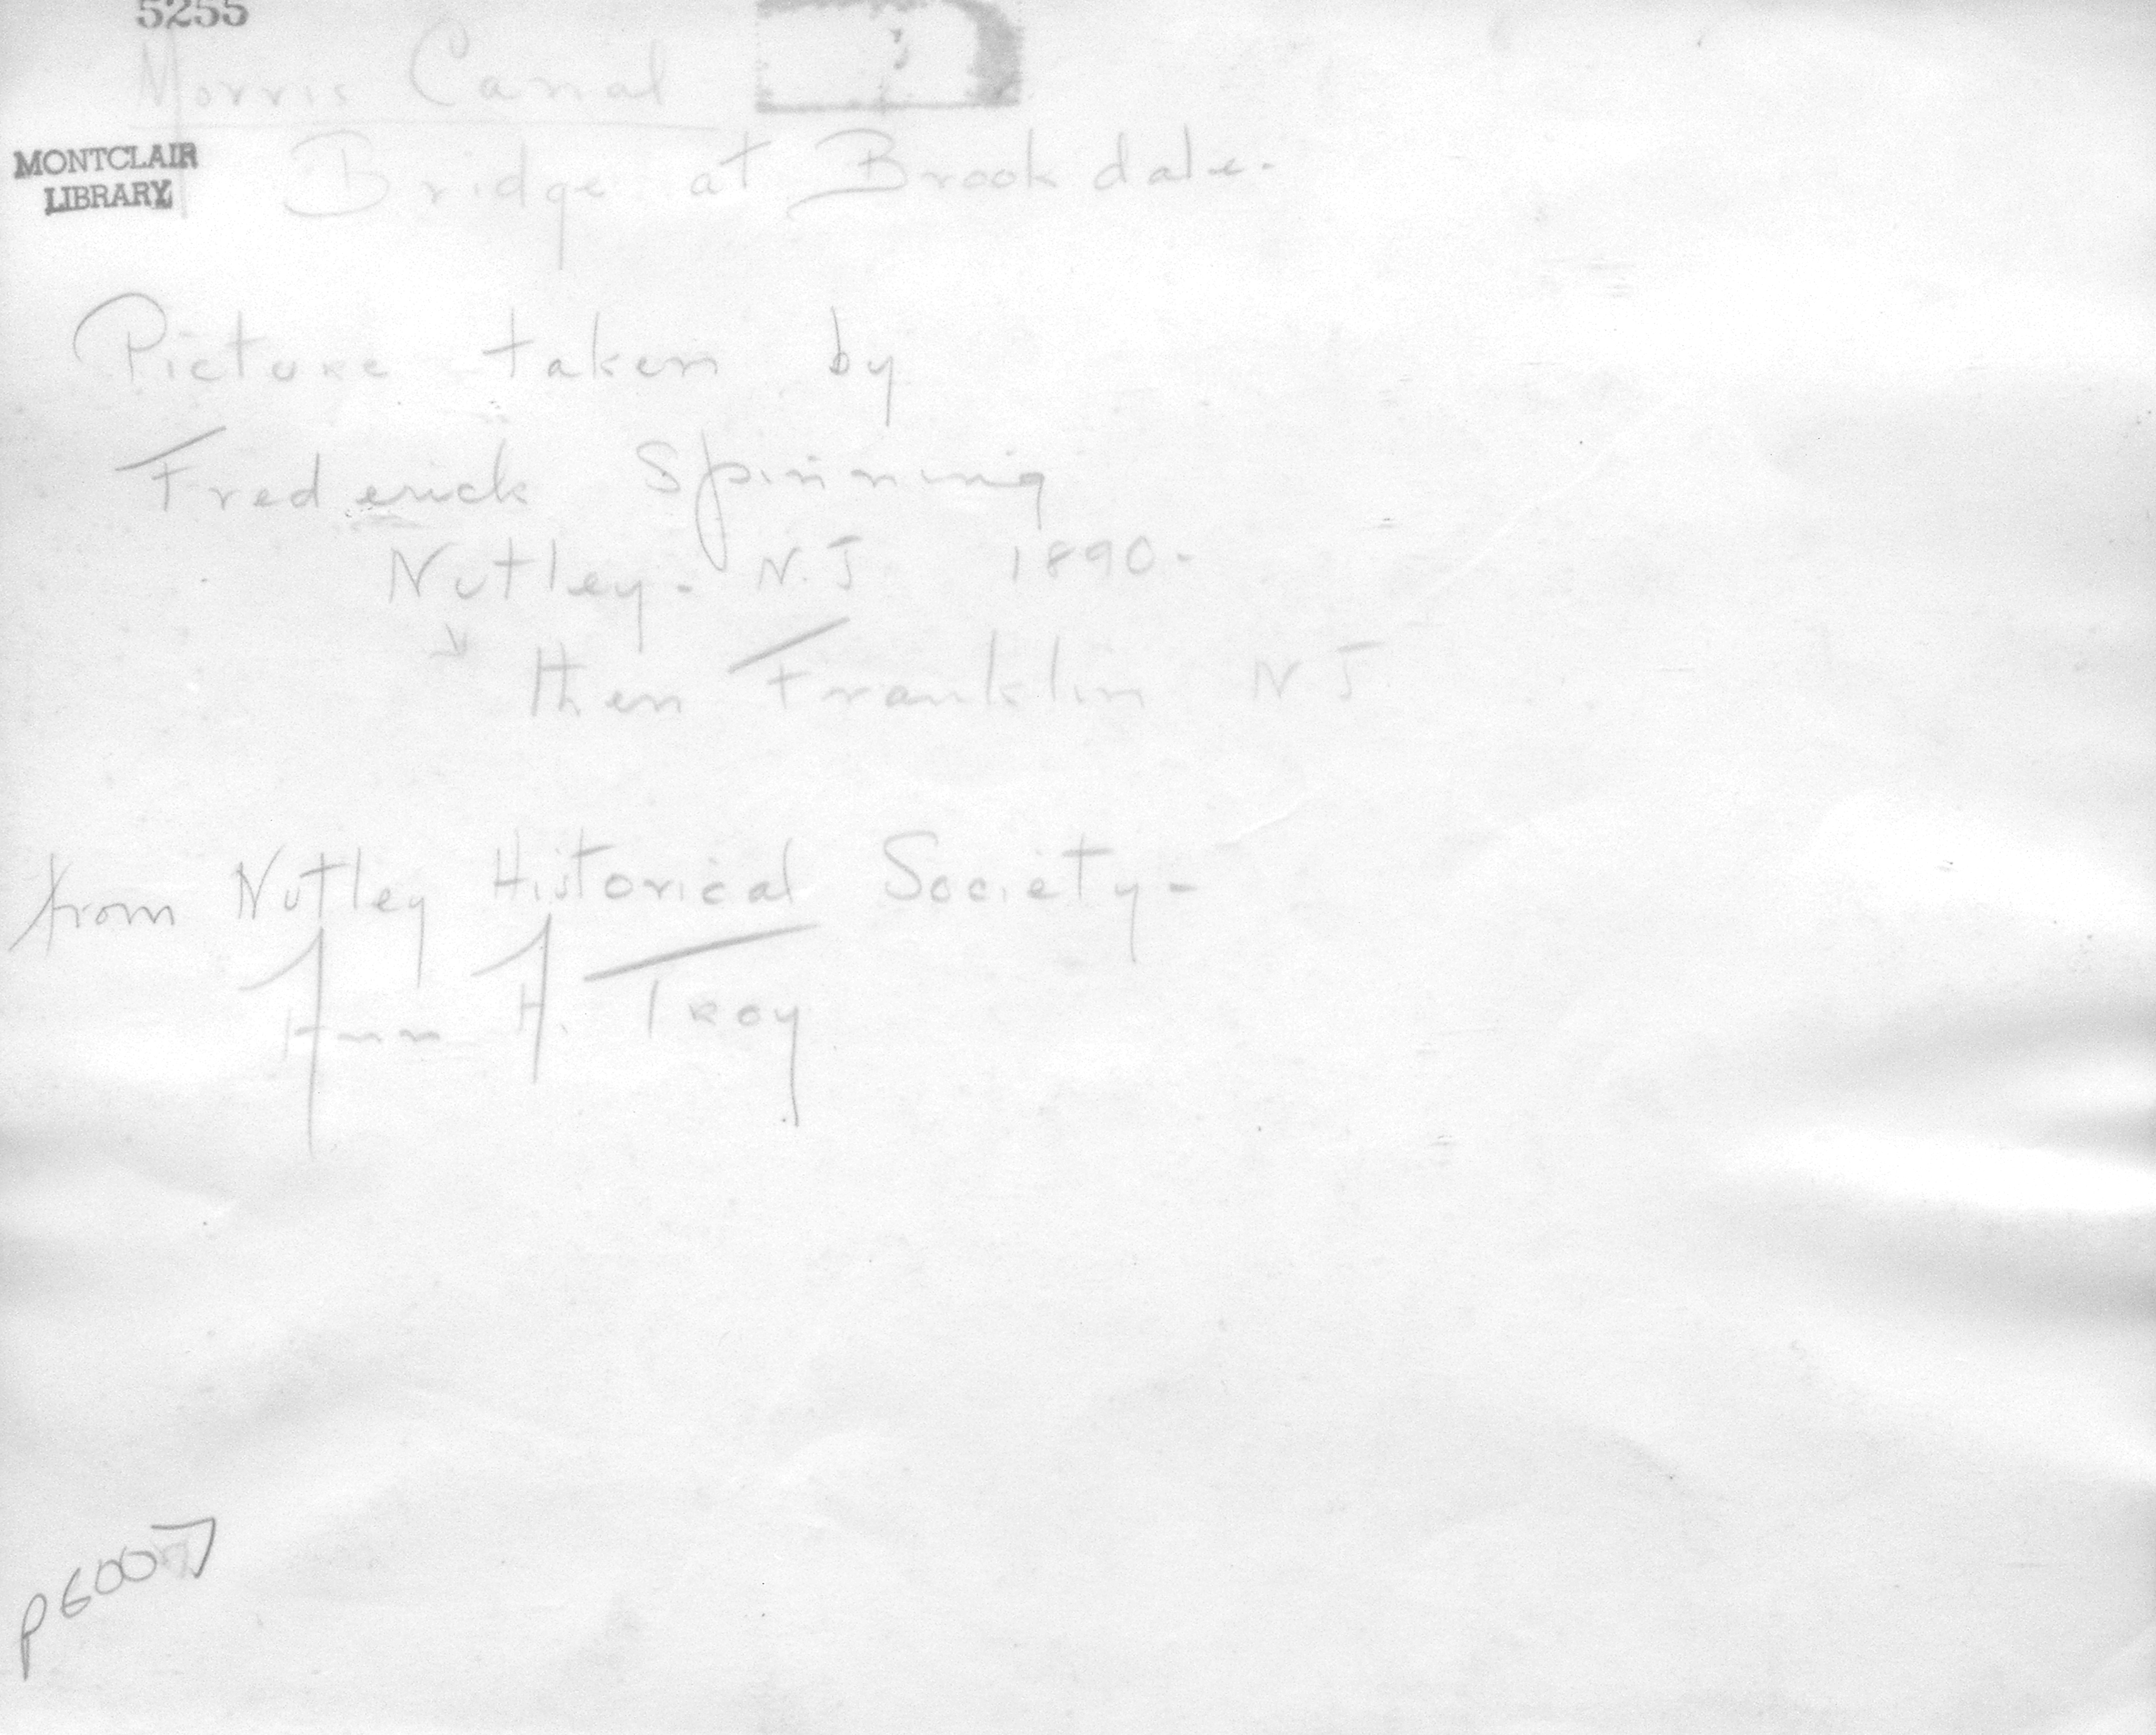 5255
Morris Canal
MONTCLAIR
LIBRARY
Bridge at Brookdale-
Picture taken by
Frederick Spinning
Nutley - N.J 1890-
then Franklin NJ
from Nutley Historical Society-
Ann A. Troy
P6007